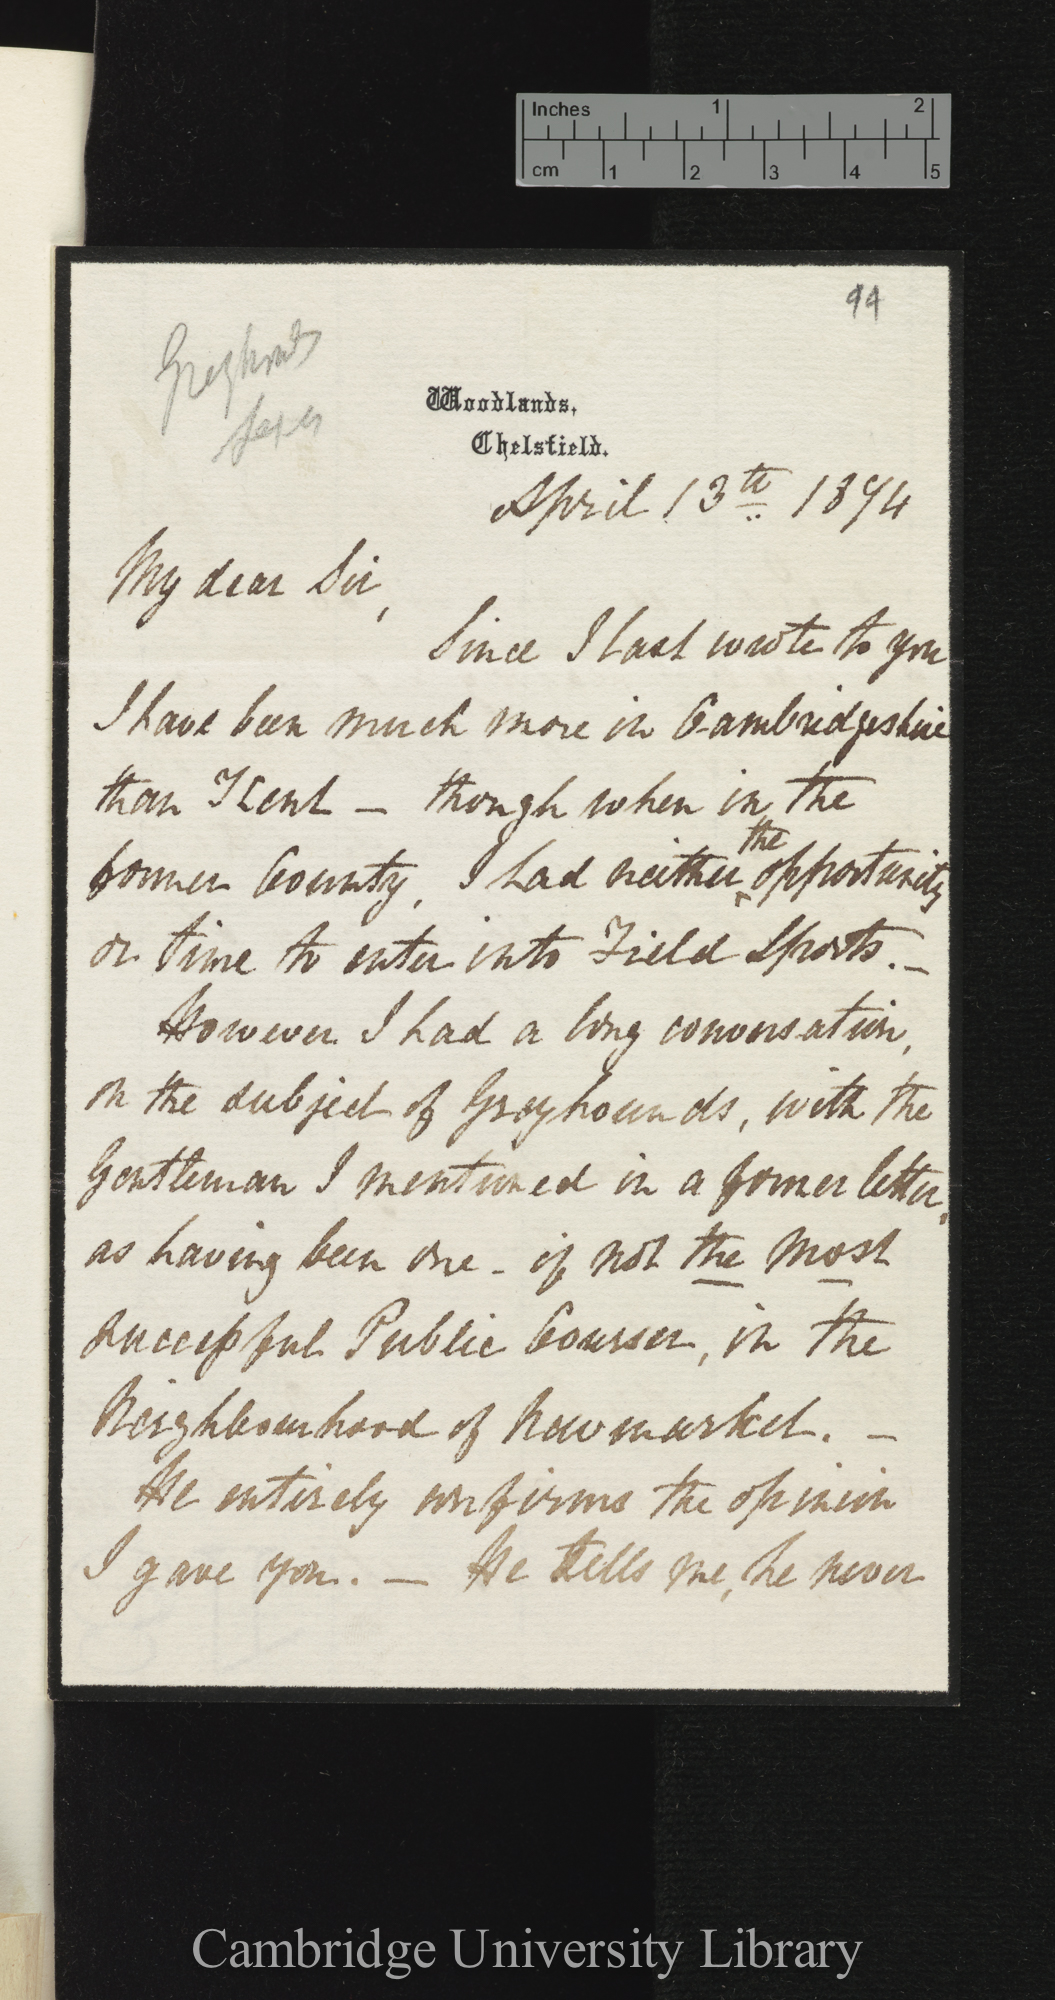 Inches 1 2
cm 1 2 3 4 5
94
Greyhounds
Sexes
Woodlands,
Chelsfield.
April 13th 1874
My dear Sir,
Since I last wrote to you
I have been much more in Cambridgeshire
than Kent – though when in the
former County, I had neither the opportunity
or time to enter into Field Sports. –
However I had a long conversation,
on the subject of Greyhounds, with the
Gentleman I mentioned in a former letter,
as having been one – if not the most
successful Public Courser, in the
Neighbourhood of Newmarket. –
He entirely confirms the opinion
I gave you. – He tells me, he never
Cambridge University Library